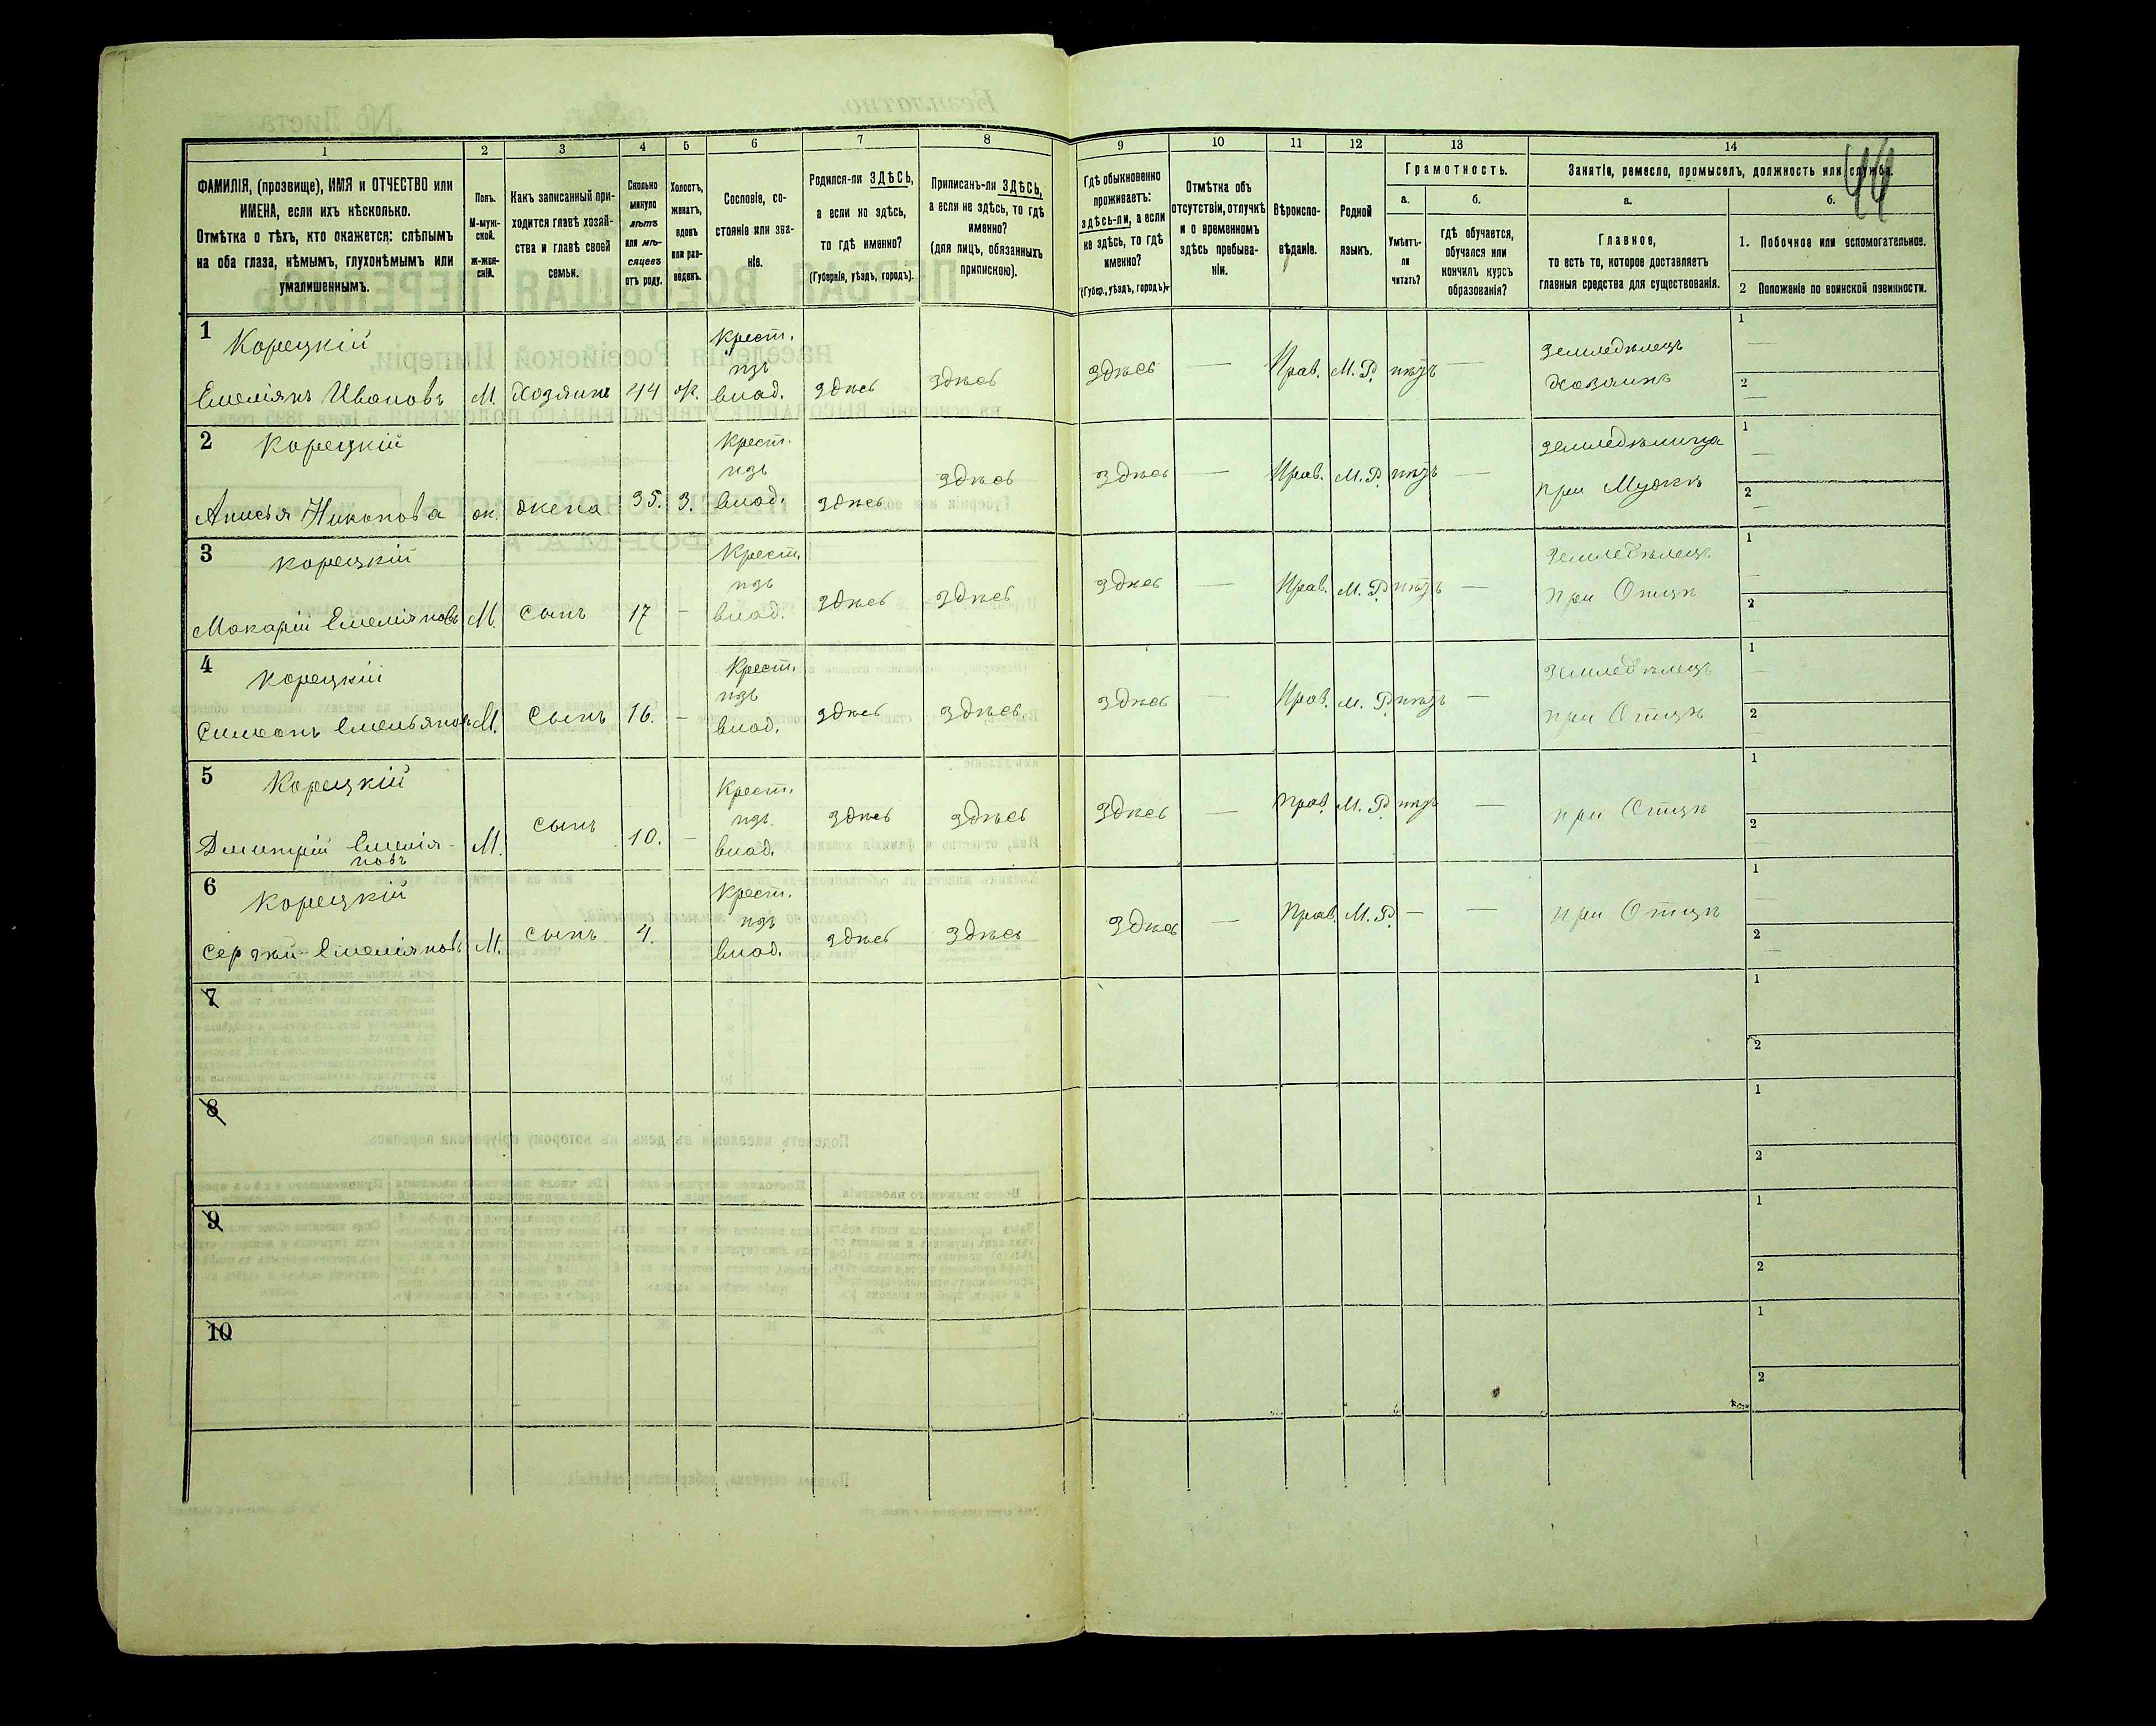 1
2
3
4
5
6
7
8
ФАМИЛІЯ, (прозвище), ИМЯ и ОТЧЕСТВО или
ИМЕНА, если ихъ нѣсколько.
Отмѣтка о тѣхъ, кто окажется: слѣпымъ
на оба глаза, нѣмымъ, глухонѣмымъ или
умалишеннымъ.
Полъ.
М-муж-
ской.
ж-жен-
скій.
Какъ записанный при-
ходится главѣ хозяй-
ства и главѣ своей
семьи.
Сколько
минуло
лѣтъ
или мѣ-
сяцевъ
отъ роду.
Холостъ,
женатъ,
вдовъ
или раз-
веденъ.
Сословіе, со-
стояніе или зва-
ніе.
Родился-ли ЗДѢСЬ,
а если но здѣсь,
то гдѣ именно?
(Губернія, уѣздъ, городъ).
Приписанъ-ли ЗДѢСЬ,
а если не здѣсь, то гдѣ
именно?
(для лицъ, обязанныхъ
припискою).
9
10
11
12
13
14
44
Гдѣ обыкновенно
проживаетъ:
здѣсь-ли, а если
не здѣсь, то гдѣ
именно?
(Губер., уѣздъ, городъ).
Отмѣтка объ
отсутствіи, отлучкѣ
и о временномъ
здѣсь пребыва-
ніи.
Вѣроиспо-
вѣданіе.
Родной
языкъ.
Грамотность.
а.
Умѣетъ-
ли
читать?
б.
гдѣ обучается,
обучался или
кончилъ курсъ
образованія?
Занятіе, ремесло, промыселъ, должность или служба.
а.
Главное,
то есть то, которое доставляетъ
главныя средства для существованія.
б.
1. Побочное или вспомогательное.
2 Положеніе по воинской повинности.
1
Корецкій
Емеліянъ Ивановъ
М.
Хозяинъ
44
ж.
Крест.
изъ
влад.
здѣсь
здѣсь
здѣсь
—
Прав.
М. Р.
нѣтъ
—
Земледѣлецъ
Хозяинъ
1
—
2
—
2
Корецкій
Анисья Никонова
ж.
жена
35.
З.
Крест.
изъ
влад.
здѣсь
здѣсь
здѣсь
—
Прав.
М. Р.
нѣтъ
—
Земледѣлица
при Мужѣ
1
—
2
—
3
Корецкій
Макарій Емеліяновъ
М.
сынъ
17
—
Крест.
изъ
влад.
здѣсь
здѣсь
здѣсь
—
Прав.
М. Р.
нѣтъ
—
Земледѣлецъ
при Отцѣ
1
2
4
Корецкій
Симеонъ Емельяновъ
М.
Сынъ
16.
—
Крест.
изъ
влад.
здѣсь
здѣсь,
здѣсь
—
Прав.
М. Р.
нѣтъ
—
Земледѣлецъ
при Отцѣ
1
—
2
—
5
Корецкій
Дмитрій Емелія-
новъ
М.
сынъ
10.
—
Крест.
изъ
влад.
здѣсь
здѣсь
здѣсь
—
Прав.
М. Р.
нѣтъ
—
при Отцѣ
1
2
6
Корецкій
Сергѣй Емеліяновъ
М.
сынъ
4.
Крест.
изъ
влад.
здѣсь
здѣсь
здѣсь
—
Прав.
М. Р.
—
—
при Отцѣ
1
—
2
—
7
1
2
8
1
2
9
1
2
10
1
2